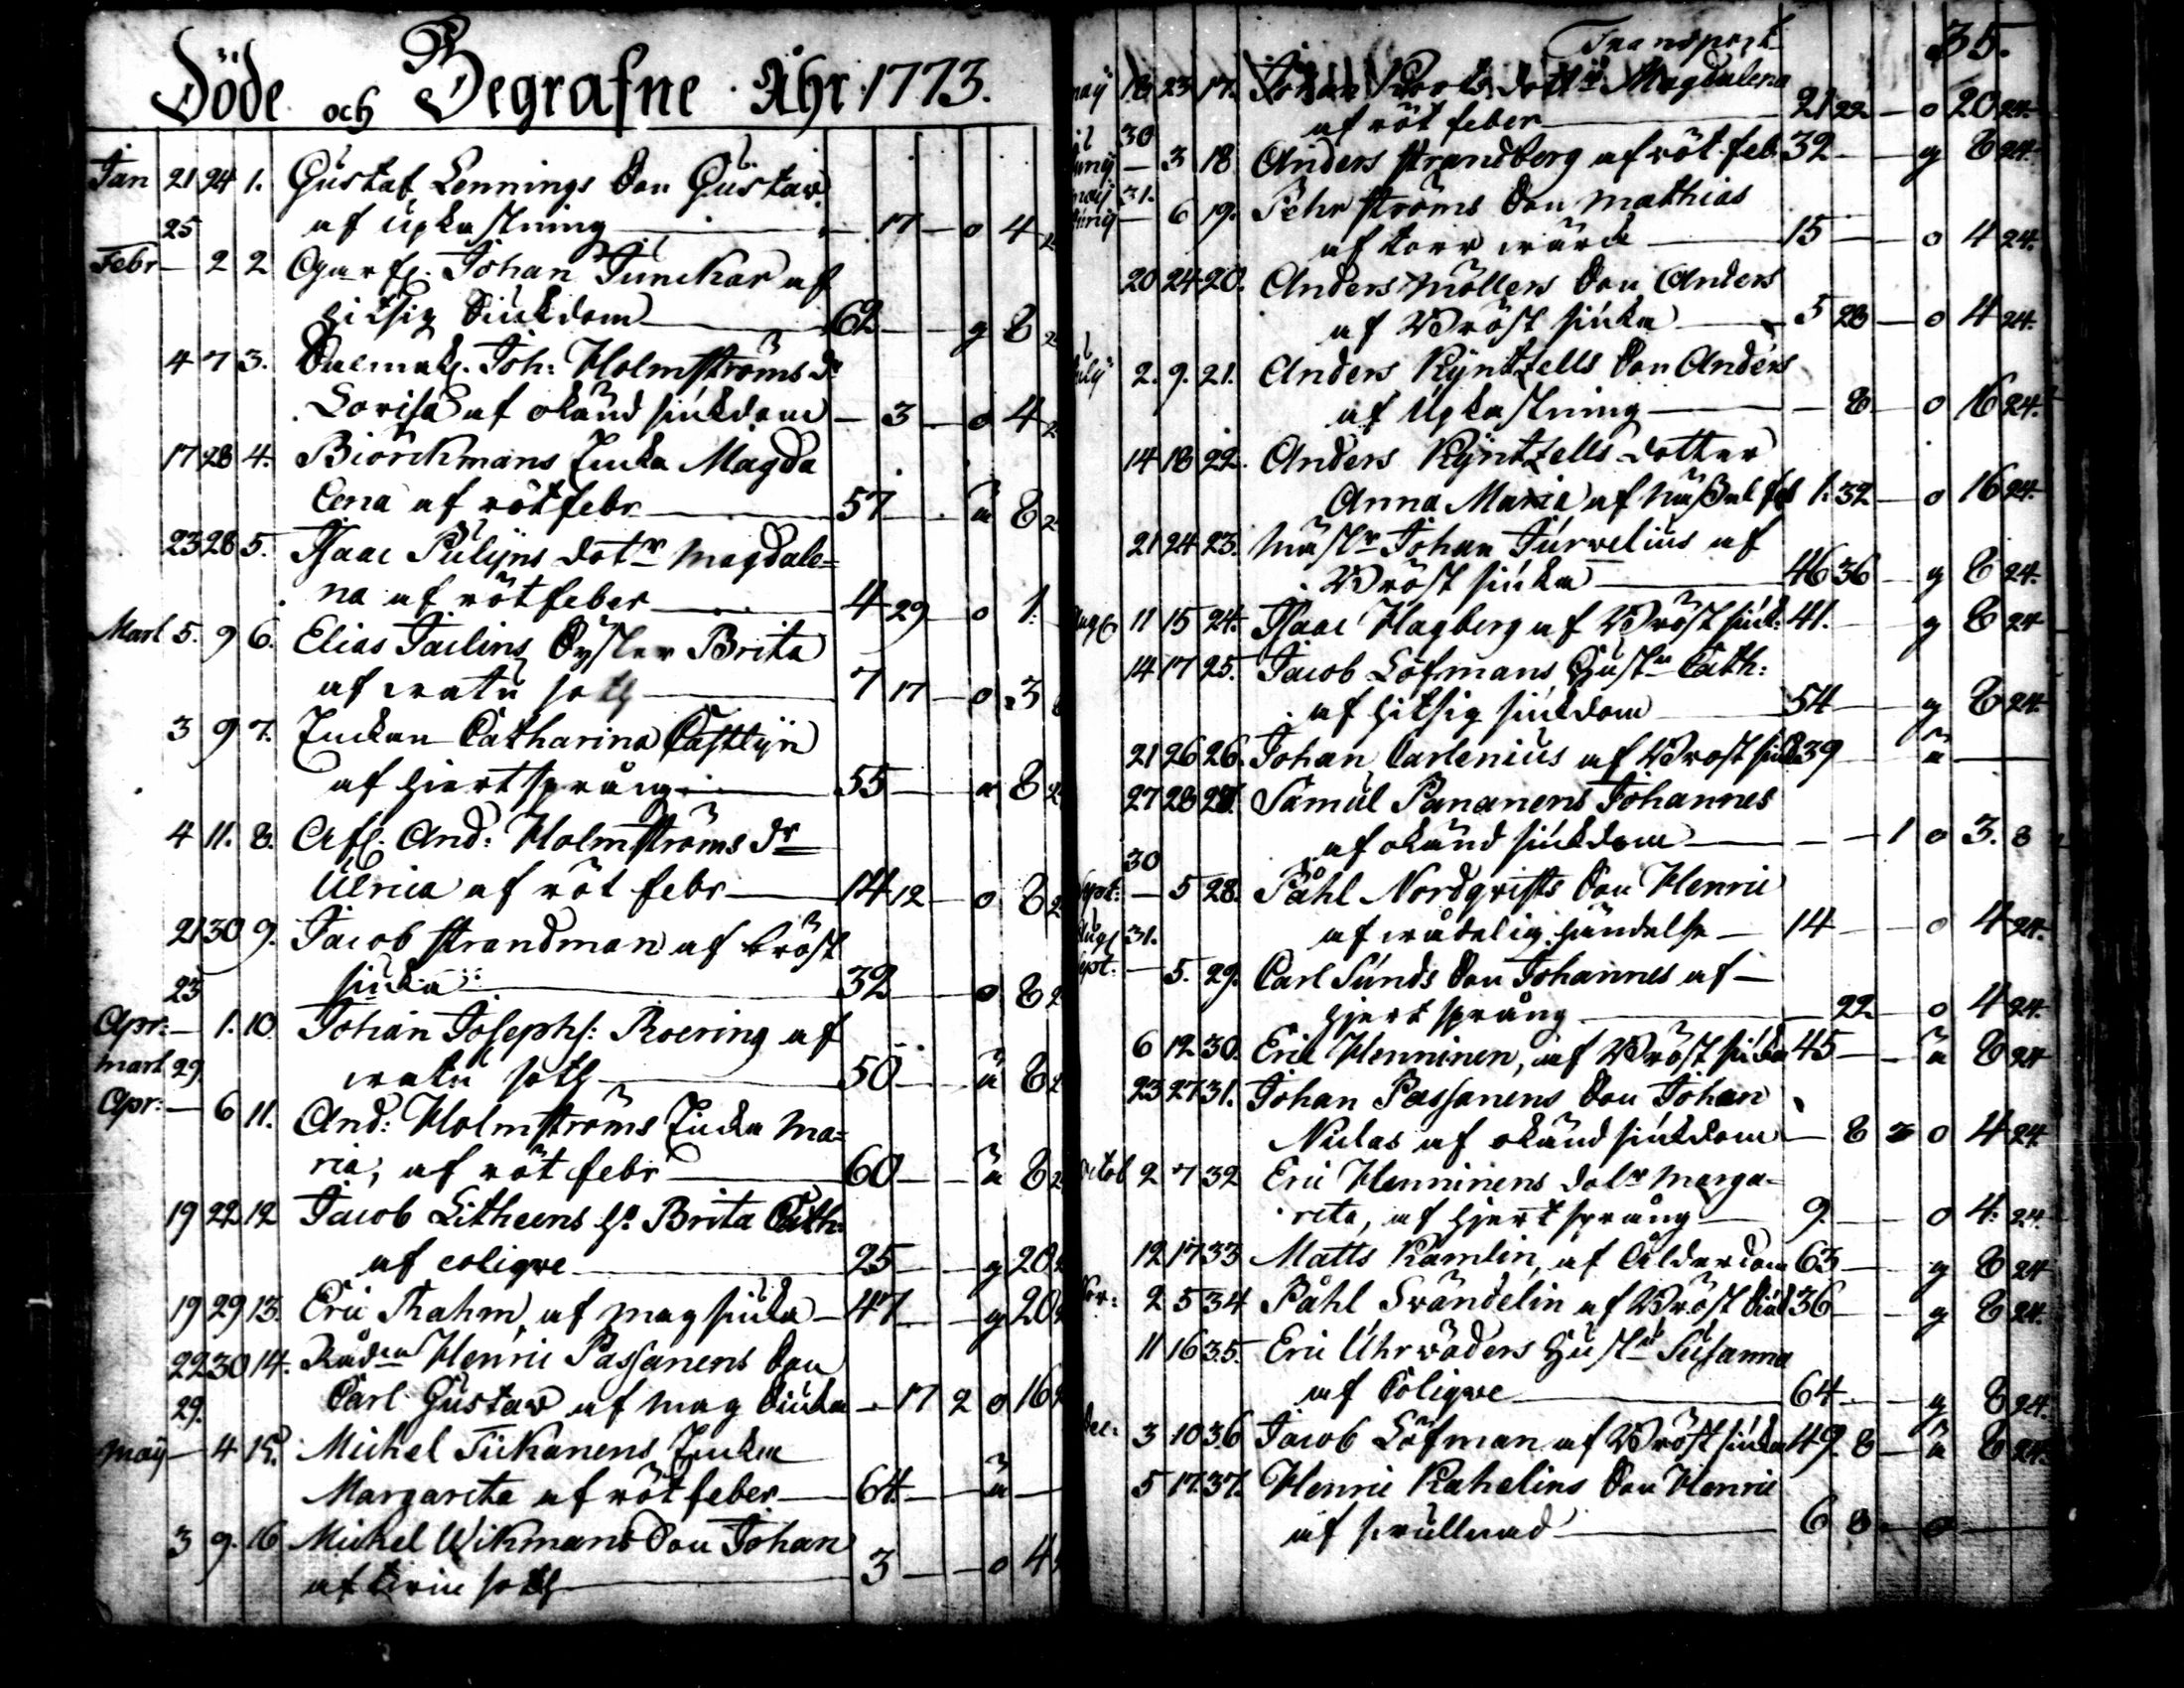 Döde och Begrafne Åhr 1773.
Jan 21 24 1. Gustaf Lennings Son Gustav
af Upkastning — 17 — o 4
25
Febr — 2 2 Johan Junckar af
hitsig Siukdom 62 — g 8
4 7 3. Joh: Holmströms dr
Lovisa af okänd siukdom — 3 — o 4
17 23 4. Biörckmans Enka Magda
lena af rötfebr 57 — ä 8
23 28 5. Isaac Pulijns dotr Magdale=
na af rötfeber 4 29 — o 1.
Mart 5. 9 6. Elias Tailins Syster Brita
af watu soth 7 17 — o 3
3 9 7. Enkan Catharina Castlijn
af hiertsprång 55 — 8
4 11. 8. And: Holmströms dr
Ulrica af röt febr 14 12 — o 8
21 30 9. Jacob Strandman af bröst
siuka 32 — o 8
23
Apr: — 1. 10. Johan Josephs: Roering af
watu soth 50 — ä 8
Mart 29
Apr: — 6 11. And: Holmströms Enka Ma=
ria, af röt febr 60 — ä 8
19 22 12 Jacob Litheens Brita Cath:
af colique 25 — g 20
19 29 13. Eric Thahm, af magsiuka — 47 — g 20
22 30 14. Henric Passanens Son
Carl Gustav af mag Siuka — 17 2 o 16
29.
May — 4 15. Michel Tiikanens Enka
Margareta af rötfeber — 64 — ä —
3 9. 16 Michel Wikmans Son Johan
soth 3 — o 4
Transport 35.
May 18 23 17. Johan dottr Magdalena
af röt feber 21 22 — o 20 24.
30
Juny — 3 18. Anders Strandberg af röt feb. 32 — g 8 24.
May 31.
Juny — 6 19. Pehr Ströms Son Mathias
af torr wärk 15 — o 4 24.
20 24 20. Anders Möllers Son Anders
af Bröst siuka 5 28 — o 4 24.
July 2. 9. 21. Anders Kyntzells Son Anders
af Upkastning — 8 — o 16 24.
14 18 22. Anders Kyntzells dotter
Anna Maria af 1. 32 — o 16 24.
21 24 23. Mästr Johan Turvelius af
Bröst siuka 46 36 — g 8 24.
Aug 11 15 24. Isaac Hagberg af Bröst siuk: 41. — g 8 24
14 17 25. Jacob Löfmans Hustr Cath:
af hitsig siukdom 54 — g 8 24.
21 26 26. Johan Carlenius af Brost siuk 39 ä —
27 28 27. Samul Pananens Johannes
af okänd siukdom — — 1 o 3. 8
30
Sept: — 5 28. Påhl Nordqvists Son Henric
af wådelig händelse — 14 — o 4 24.
Aug 31.
Sept. — 5. 29. Carl Sunds Son Johannes af —
hjert språng — 22 — o 4 24.
6 12 30. Eric Henninen, af Bröst siuka 45 — ä 8 24
23 27 31. Johan Passanens Son Johan
Niclas af okänd siukdom — 8 3 o 4 24.
Octob 2 7 32 Eric Henninens dotr Marga=
reta, af hjert språng — 9. — o 4. 24.
12 17 33 Matts Kamlin, af Ålderdom 63 — g 8 24
Nov: 2 5 34 Påhl Svändelin af Bröst Siuk 36 — g 8 24.
11 16 35. Eric Uhrväders Hustr Susanna
af Colique — 64 — g 8 24.
Dec: 3 10 36 Jacob Löfman af Bröst siuka 49. 8 — ä 8 24.
5 17. 37. Henric Kahelins Son Henric
af swullnad 6 8 — o —